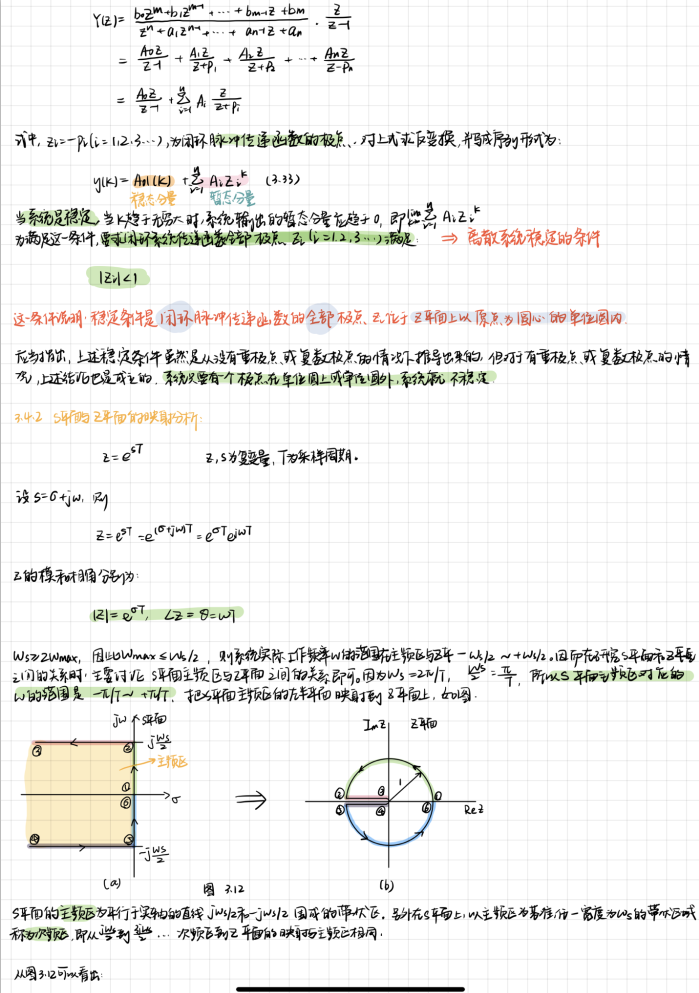 Y(z) = (b₀z^m+b₁z^(m-1)+⋯+b_(m-1)z+b_m)/(z^n+a₁z^(n-1)+⋯+a_(n-1)z+a_n) · z/(z-1)
= A₀z/(z-1) + A₁z/(z+p₁) + A₂z/(z+p₂) + ⋯ + A_nz/(z-p_n)
= A₀z/(z-1) + Σ_(i=1)^n A_i z/(z+p_i)
式中, z_i=-p_i(i=1,2,3⋯),为闭环脉冲传递函数的极点. 对上式求反变换,并写成序列形式为:
y(k) = A₀1(k) + Σ_(i=1)^n A_i z_i^k (3.33)
稳态分量 暂态分量
当系统是稳定,当k趋于无穷大时,系统输出的暂态分量应趋于0,即lim Σ_(i=1)^n A_i z_i^k
为满足这一条件,要求闭环系统传递函数全部极点 z_i(i=1,2,3⋯)满足: ⇒ 离散系统稳定的条件
|z_i|<1
这一条件说明:稳定条件是闭环脉冲传递函数的全部极点z_i位于z平面上以原点为圆心的单位圆内.
应当指出,上述稳定条件虽然是从没有重极点或复数极点的情况下推导出来的,但对于有重极点或复数极点的情
况,上述结论也是成立的. 系统只要有一个极点在单位圆上或单位圆外,系统就不稳定
3.4.2 S平面与Z平面的映射分析:
z=e^(sT) z,s为复变量,T为采样周期.
设s=σ+jω, 则
z=e^(sT)=e^((σ+jω)T)=e^(σT)e^(jωT)
z的模和相角分别为:
|z|=e^(σT), ∠z=θ=ωT
ωs≥2ωmax, 因此ωmax≤ωs/2, 则系统实际工作频率ω的范围在主频区与z平 -ωs/2~+ωs/2.因而在研究s平面和z平面
之间的关系时,主要讨论 s平面主频区与z平面之间的关系即可.因为ωs=2π/T, ωs/2=π/T, 所以s平面主频区对应的
ω的范围是 -π/T~+π/T, 把s平面主频区的左半平面映射到z平面上,如图.
jω S平面 Imz z平面
③ ② jωs/2
主频区
① ⑥ σ ⇒ ② ③ ⑤ ④ 1 ① ⑥ Rez
④ ⑤ -jωs/2
(a) 图 3.12 (b)
s平面的主频区为平行于实轴的直线jωs/2和-jωs/2围成的带状区. 另外在s平面上,以主频区为基准,每一宽度为ωs的带状区域
称为次频区,即从 ⋯ 次频区到z平面的映射与主频区相同.
从图3.12可以看出: